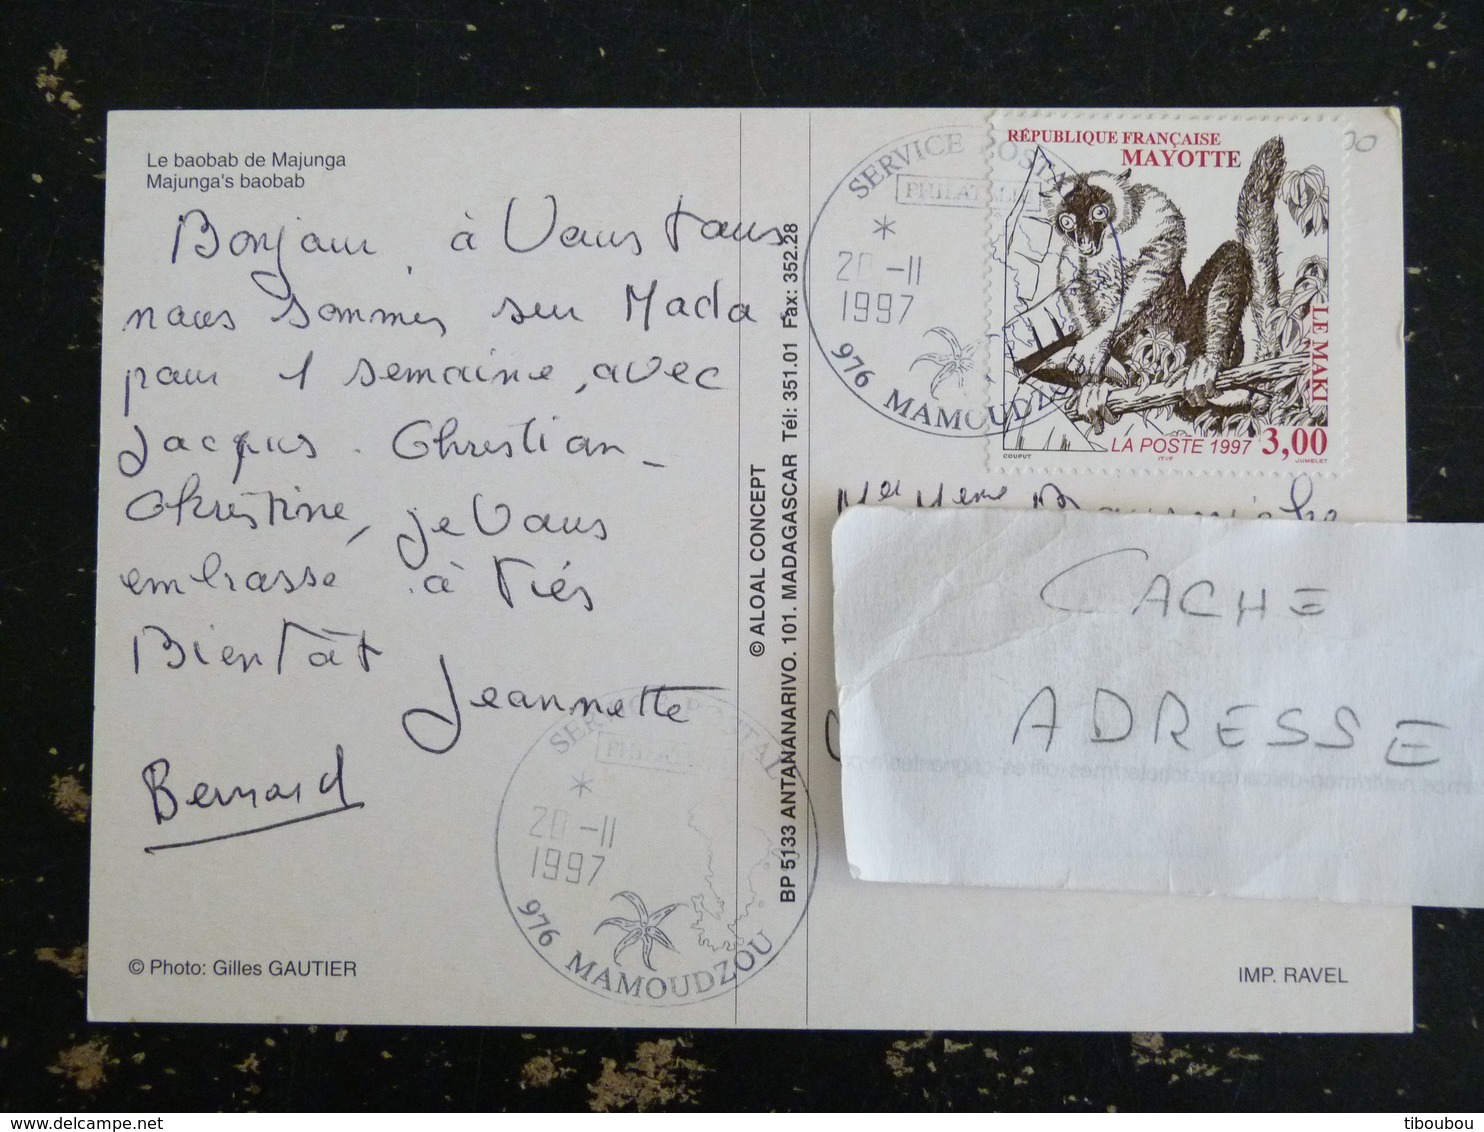 Le baobab de Majunga
Majunga's baobab
Bonjour à Vous tous
nous sommes sur Mada
pour 1 semaine, avec
Jacques. Christian_
Christine, je Vous
embrasse à Très
Bientôt
Jeannette
Bernard
© Photo: Gilles GAUTIER
SERVICE POSTAL
PHILATELIE
20-11
1997
976 MAMOUDZOU
© ALOAL CONCEPT
BP 5133 ANTANANARIVO. 101. MADAGASCAR Tél: 351.01 Fax: 352.28
SERVICE POSTAL
PHILATELIE
20-11
1997
976 MAMOUDZOU
RÉPUBLIQUE FRANÇAISE
MAYOTTE
LE MAKI
LA POSTE 1997 3,00
COUPUT ITVF JUMELET
CACHE
ADRESSE
IMP. RAVEL
delcampe.net
tiboubou